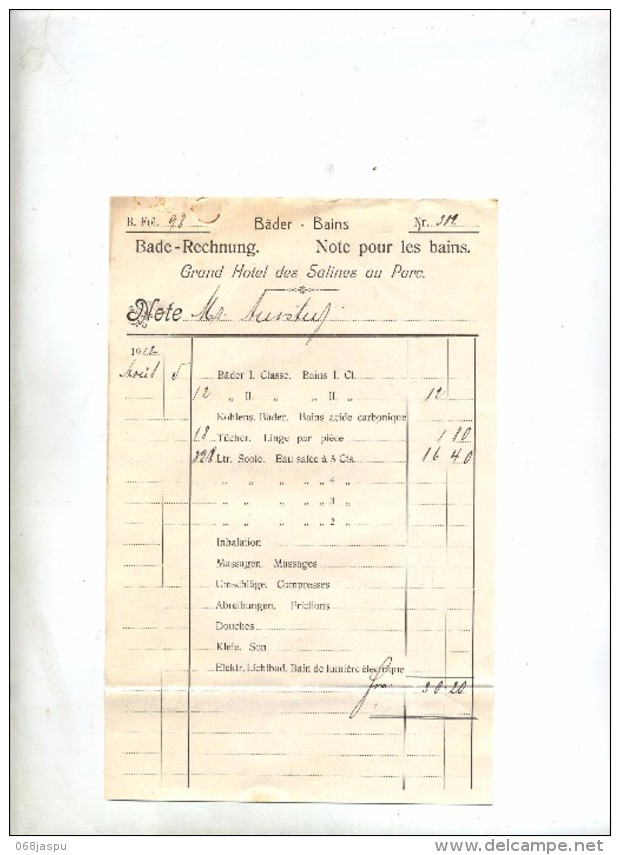 B. Fol. 98 Bäder - Bains Nr. 382
Bade-Rechnung. Note pour les bains.
Grand Hotel des Salines au Parc.
Note Mr.
1912
Août 5 Bäder I. Classe. Bains I. Cl.
12 „ II. „ „ II. „ 12
Kohlens. Bäder. Bains acide carbonique
18 Tücher. Linge par pièce 1 80
328 Ltr. Soole. Eau salée à 5 Cts. 16 40
„ „ „ „ „ 4 „
„ „ „ „ „ 3 „
„ „ „ „ „ 2 „
Inhalation
Massagen. Massages
Umschläge. Compresses
Abreibungen. Frictions
Douches
Kleie. Son
Elektr. Lichtbad. Bain de lumière électrique
frs. 30 20
068jaspu
delcampe.net